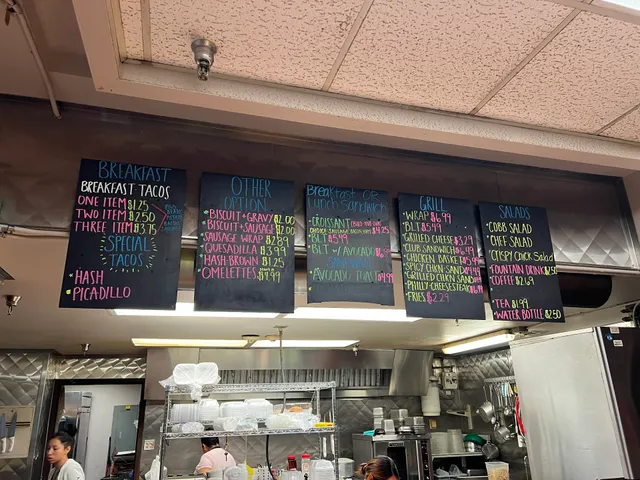 BREAKFAST
BREAKFAST TACOS
ONE ITEM $1.25
TWO ITEM $2.50
THREE ITEM $3.75
SPECIAL
TACOS
• HASH
• PICADILLO
OTHER
OPTION
• BISCUIT + GRAVY $2.00
• BISCUIT + SAUSAGE $2.00
SAUSAGE WRAP $2.89
QUESADILLA $3.99
HASH BROWN $1.25
• OMELETTES $7.99
Breakfast or
Lunch Sandwich
• CROISSANT
$4.25
• BLT $5.49
• BLT w/ AVOCADO
• AVOCADO TOAST
GRILL
• WRAP $6.99
• BLT $5.49
• GRILLED CHEESE $3.29
• CLUB SANDWICH $6.49
• CHICKEN BASKET $5.99
• SPICY CHKN SAND
• GRILLED CHKN SAND
• PHILLY CHEESESTEAK
• FRIES $2.29
SALADS
• COBB SALAD
• CHEF SALAD
• CRISPY CHICK SALAD
FOUNTAIN DRINK
COFFEE $2.69
• TEA $1.99
• WATER BOTTLE $2.50